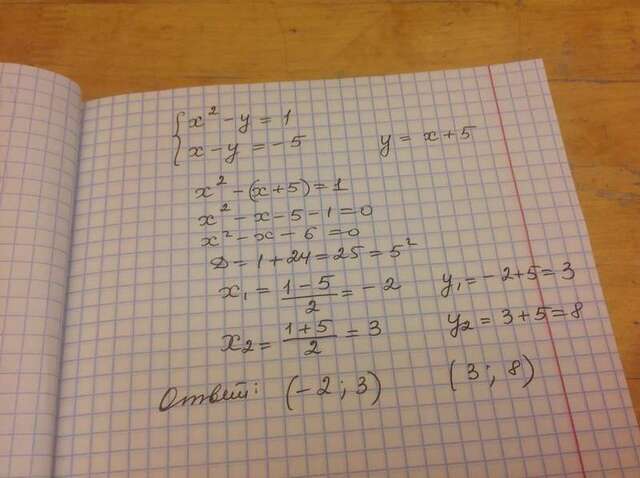 { x² - y = 1
x - y = -5 y = x + 5
x² - (x+5) = 1
x² - x - 5 - 1 = 0
x² - x - 6 = 0
D = 1 + 24 = 25 = 5²
x₁ = (1-5)/2 = -2 y₁ = -2+5 = 3
x₂ = (1+5)/2 = 3 y₂ = 3+5 = 8
Ответ: (-2; 3) (3; 8)